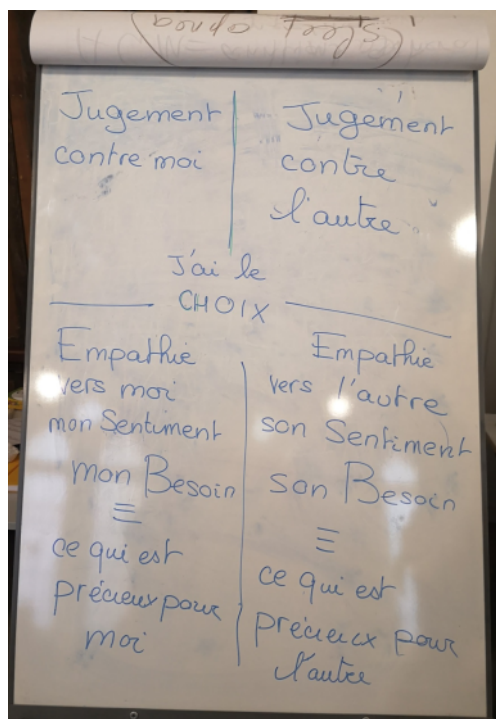 Jugement
contre moi
Jugement
contre
l'autre
J'ai le
CHOIX
Empathie
vers moi
mon Sentiment
mon Besoin
≡
ce qui est
précieux pour
moi
Empathie
vers l'autre
son Sentiment
son Besoin
≡
ce qui est
précieux pour
l'autre